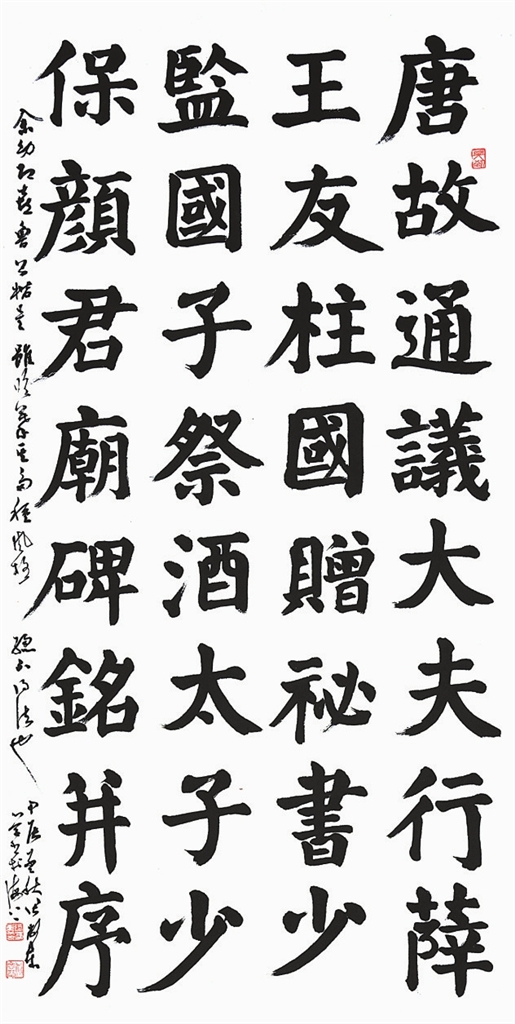 唐故通議大夫行薛
王友柱國贈祕書少
監國子祭酒太子少
保顏君廟碑銘并序
余幼即喜魯公楷書雖臨